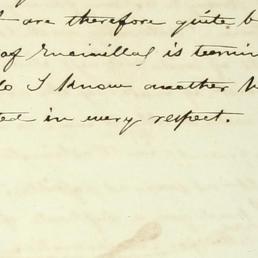 are therefore quite b
of Encinillas is termin
do I know another h
ted in every respect.